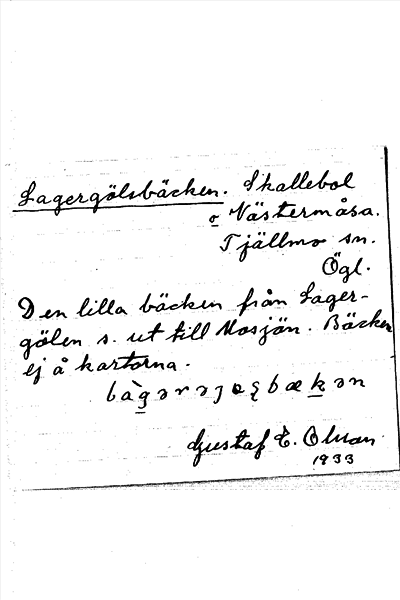 Lagergölsbäcken. Skallebol
o Västermåsa.
Tjällmo sn.
Ögl.
Den lilla bäcken från Lager-
gölen s. ut till Mosjön. Bäcken
ej å kartorna.
Gustaf E. Olsson
1933